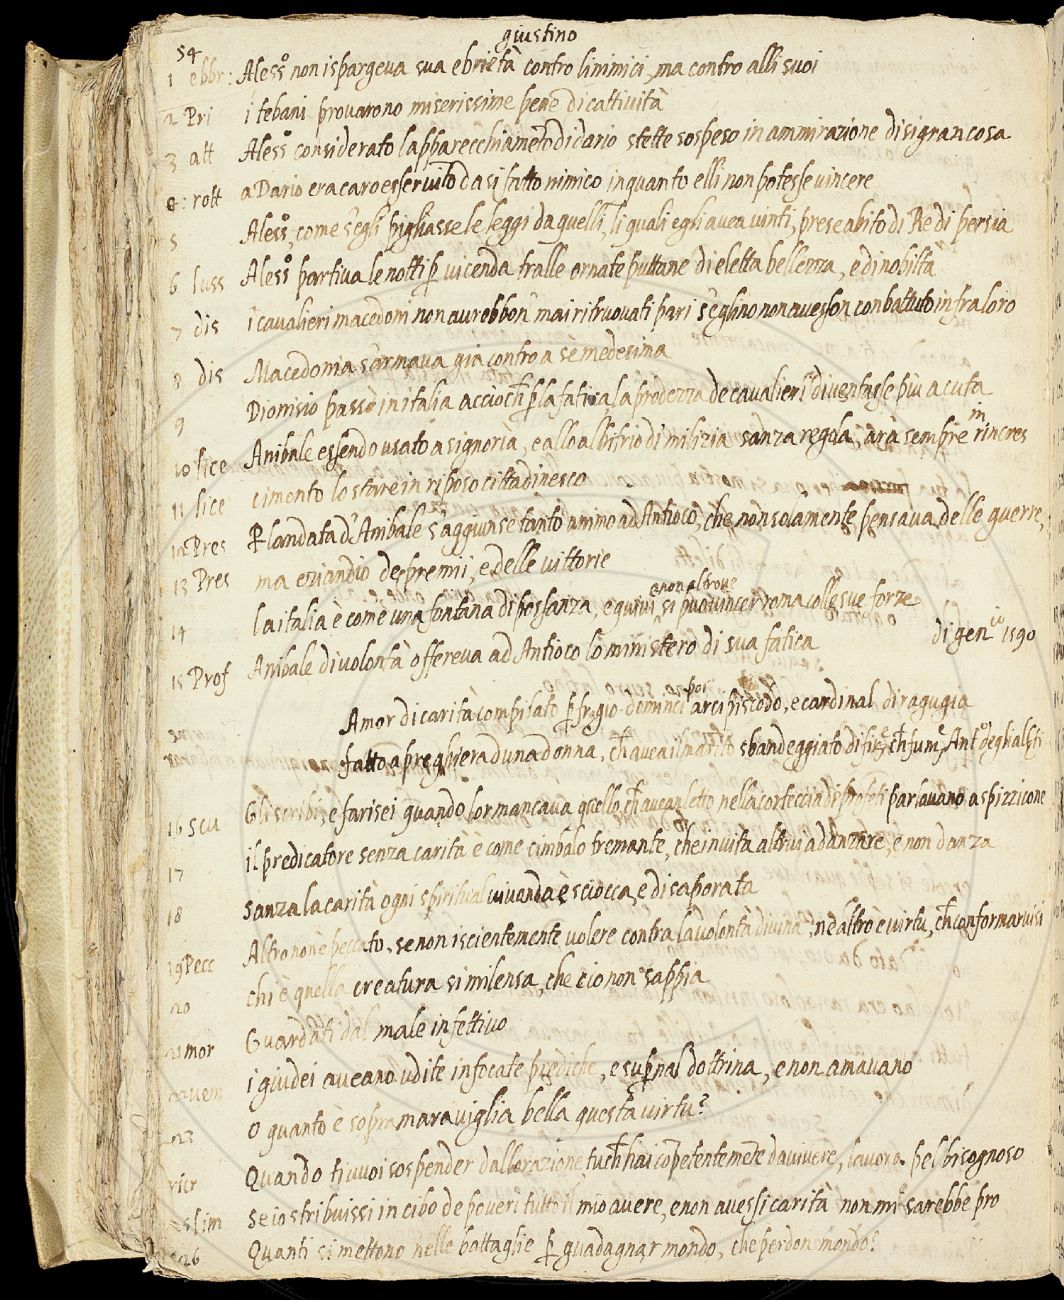 54
giustino
1 ebbr: Alessº non ispargeva sua ebrietà contro linimici, ma contro alli suoi
2 Pri i tebani provarono miserissime pene di cattività
3 att Alessº considerato lapparecchiamēto di dario stette sospeso in ammirazione di sì gran cosa
4: rott a Dario era caro esser vinto da si fatto nimico inquanto elli non potesse vincere
5 Alessº, come s'egli pigliasse le leggi da quelli, li quali egli avea vinti, prese abito di Re di persia
6 luss Alessº partiva le notti ꝑ vicenda tralle ornate puttane di eletta bellezza, e di nobiltà
7 dis i cavalieri macedoni non avrebbon mai ritruovati pari s'eglino non avesson conbattuto infra loro
8 dis Macedonia s'armava già contro a sè medesima
9 Dionisio passò in italia accioch̄ ꝑ la fatica, la prodezza de cavalieri diventasse più acuta
10 lice Anibale essendo usato a signoria, e allo albitrio di milizia sanza regola, arà sempre rincres
m
11 lice cimento lo stare in riposo cittadinesco
12 Pres ꝑ landata d'Anibale s'aggiunse tanto animo ad Antioco, che non solamente pensava delle guerre,
13 Pres ma eziandio de premi, e delle vittorie
e non altrove
14 la italia è come una fontana di possanza, e quivi si può vincer roma colle sue forze
di genº 1590
15 Prof Anibale di volontà offereva ad Antioco lo ministero di sua fatica
Amor di carità compilato ꝑ fr. gio domnci arcipiscodo, e cardinal di ragugia
fatto a preghiera duna donna, ch̄ avea il marito sbandeggiato di
16 scu Gli scribi, e farisei quando lor mancava quello, ch̄ avean letto nella corteccia di profeti parlavano a spizzicone
17 il predicatore senza carità è come cimbalo tremante, che invita altrui a danzare, e non danza
18 Sanza la carità ogni spiritual vivanda è sciocca, e disaporata
19 Pecc Altro non è peccato, se non iscientemente volere contra la volontà divina, nè altro è virtù, ch̄ conformarvisi
20 chi è quella creatura si milensa, che ciò non sappia
21 mor Guardati dal male infettivo
i giudei aveano udite infocate prediche, e suꝑnal dottrina, e non amavano
23 O quanto è sopra maraviglia bella questa virtù?
Quando ti vuoi sospender dallorazione tu ch̄ hai cōpetentemēte da vivere, lavora pel bisognoso
lim Se io stribuissi in cibo de poveri tutto il mio avere, e non avessi carità non mi sarebbe pro
26 Quanti si mettono nelle battaglie ꝑ guadagnar mondo, che perdon mondo?